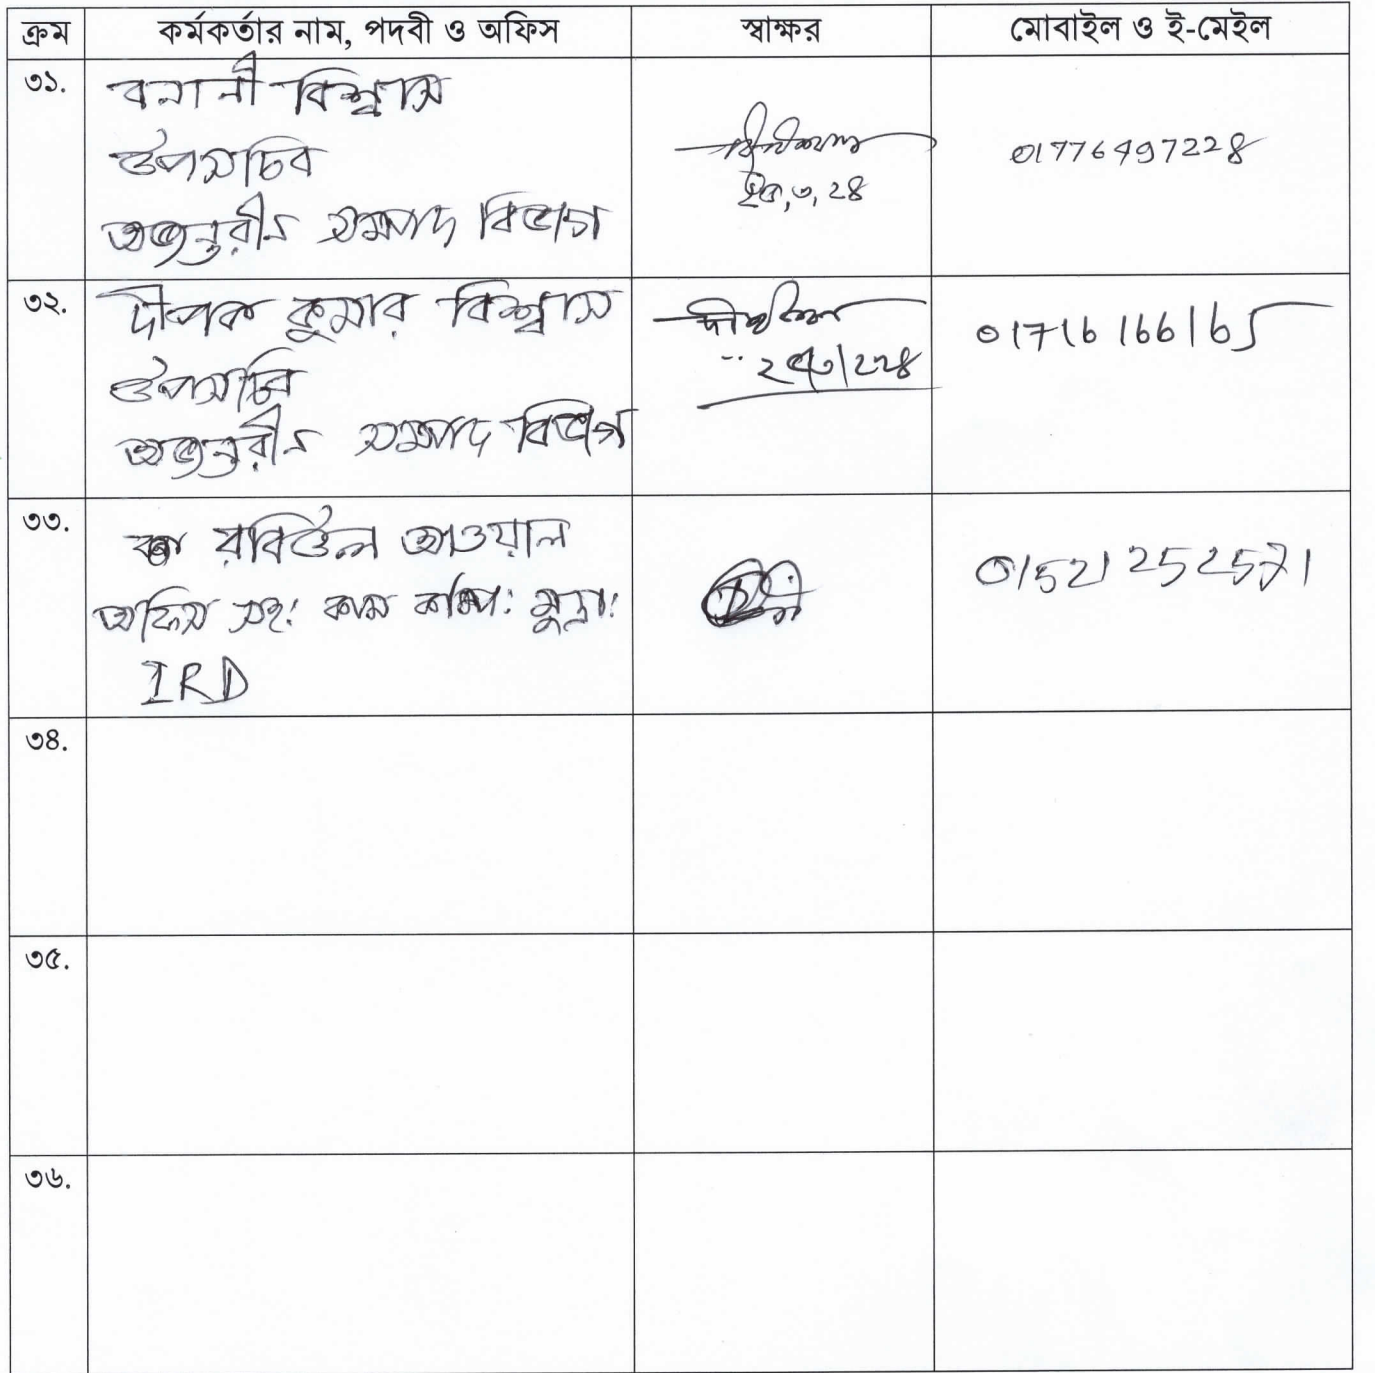 ক্রম কর্মকর্তার নাম, পদবী ও অফিস স্বাক্ষর মোবাইল ও ই-মেইল
৩১. বনানী বিশ্বাস
উপসচিব
অভ্যন্তরীন সম্পদ বিভাগ
01776497228
৩২. দীপক কুমার বিশ্বাস
উপসচিব
অভ্যন্তরীন সম্পদ বিভাগ
01716166165
৩৩. রবিউল আওয়াল
অফিস সহ: কাম কম্পি: মুদ্রা:
IRD
01521252571
৩৪.
৩৫.
৩৬.